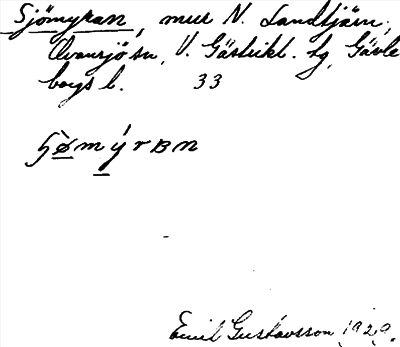 Sjömyran, mur N. Landtjärn,
Ovansjö sn, V. Gästrikl. tg, Gävle
borgs l. 33
ɧø̀mýrʙn
Emil Gustavsson 1929.